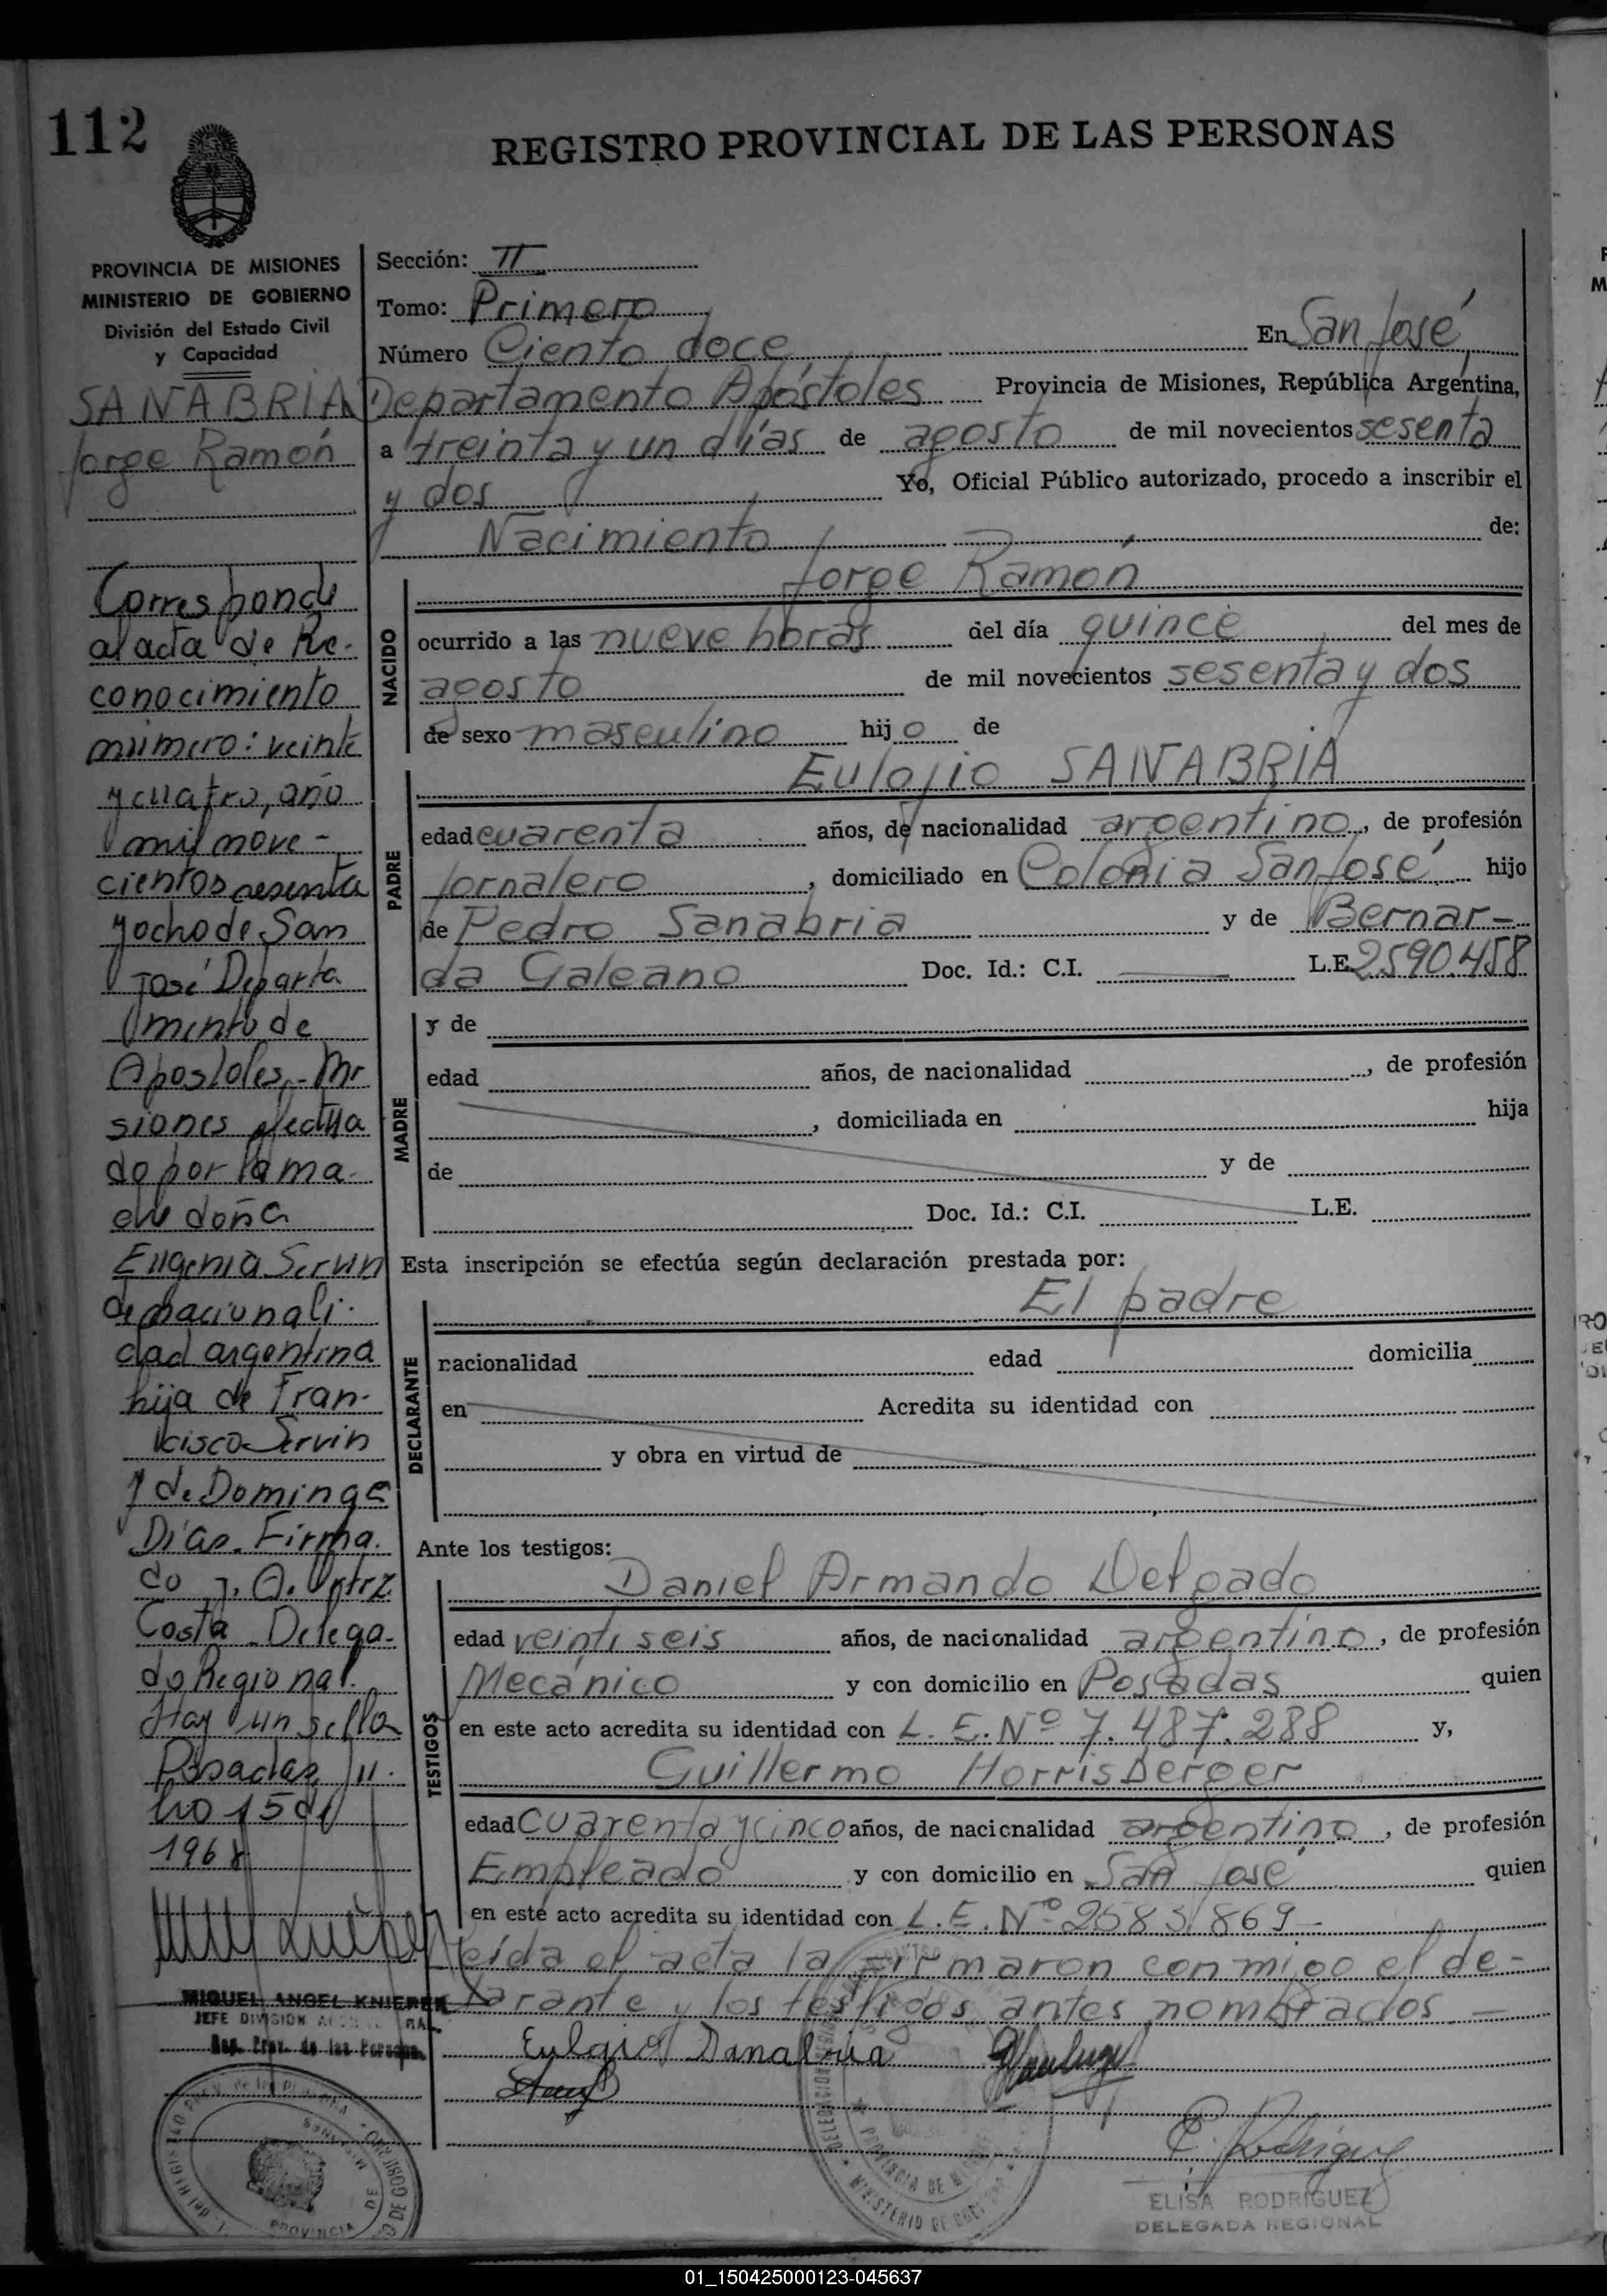 112
REGISTRO PROVINCIAL DE LAS PERSONAS
PROVINCIA DE MISIONES
MINISTERIO DE GOBIERNO
División del Estado Civil
y Capacidad
SANABRIA
Jorge Ramón
Corresponde
al acta de Re-
conocimiento
número: veinte
y cuatro, año
mil nove-
cientos sesenta
y ocho de San
José Departa
mento de
Apostoles,- Mi
siones efectua
do por la ma-
dre doña
Eugenia Servin
de nacionali-
dad argentina
hija de Fran-
cisco Servin
y de Dominga
Días. Firma-
do J. A.
Costa - Delega-
do Regional.
Hay un sello
Posadas, ju-
lio 15 de
1968
MIGUEL ANGEL KNIEPER
JEFE DIVISION
Reg. Prov. de las Personas
Sección: II
Tomo: Primero
Número Ciento doce En San José,
Departamento Apóstoles Provincia de Misiones, República Argentina,
a treinta y un días de agosto de mil novecientos sesenta
y dos Yo, Oficial Público autorizado, procedo a inscribir el
Nacimiento de:
NACIDO
Jorge Ramón
ocurrido a las nueve horas del día quince del mes de
agosto de mil novecientos sesenta y dos
de sexo masculino hij o de
PADRE
Eulojio SANABRIA
edad cuarenta años, de nacionalidad argentino, de profesión
Jornalero, domiciliado en Colonia San José hijo
de Pedro Sanabria y de Bernar-
da Galeano Doc. Id.: C.I. L.E. 2590.458
MADRE
y de
edad años, de nacionalidad , de profesión
, domiciliada en hija
de y de
Doc. Id.: C.I. L.E.
Esta inscripción se efectúa según declaración prestada por:
DECLARANTE
El padre
nacionalidad edad domicilia
en Acredita su identidad con
y obra en virtud de
Ante los testigos:
TESTIGOS
Daniel Armando Delgado
edad veintiseis años, de nacionalidad argentino, de profesión
Mecánico y con domicilio en Posadas quien
en este acto acredita su identidad con L.E. Nº 7.487.288 y,
Guillermo Horrisberger
edad cuarenta y cinco años, de nacionalidad argentino, de profesión
Empleado y con domicilio en San José quien
en este acto acredita su identidad con L.E. Nº 2583869-
Leida el acta la firmaron conmigo el de-
larante y los testigos antes nombrados.-
Eulojio Sanabria
E. Rodríguez
ELISA RODRIGUEZ
DELEGADA REGIONAL
PROVINCIA DE
MINISTERIO DE GOBIERNO
PROVINCIA
01_150425000123-045637